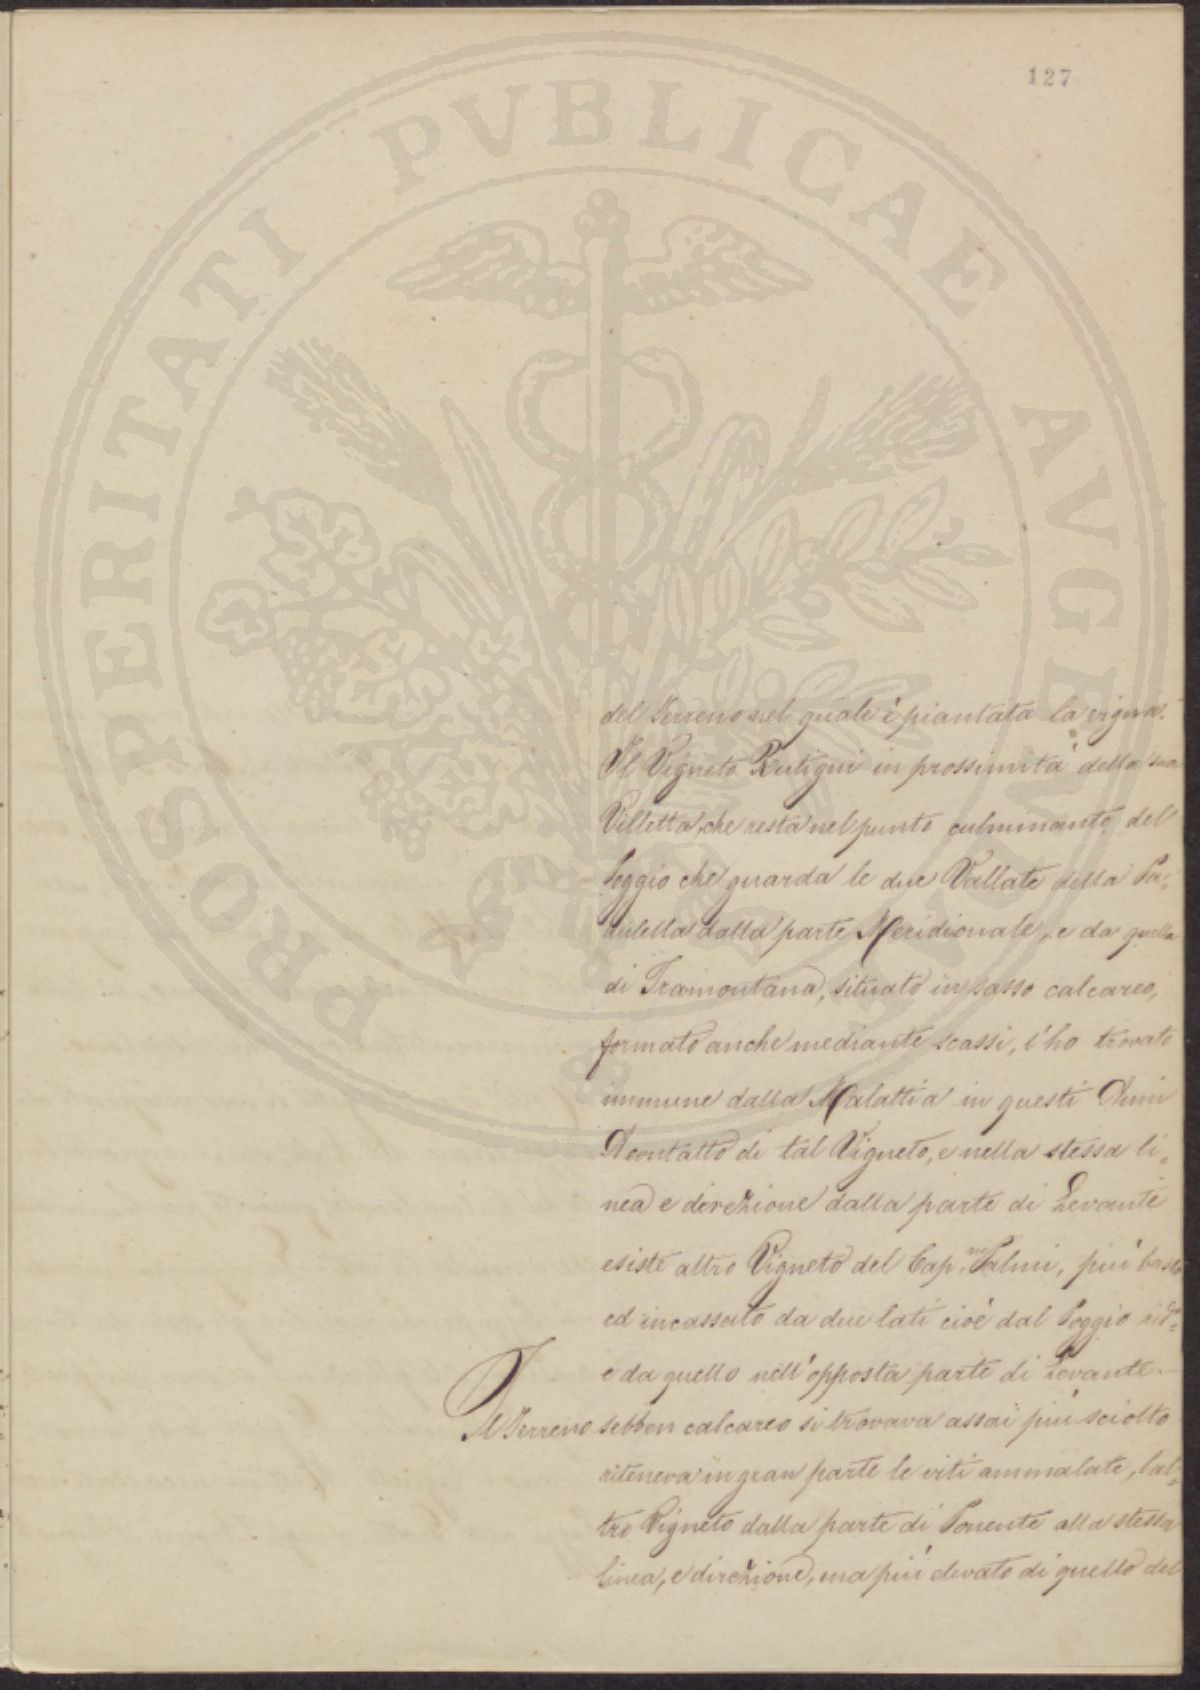 127
PROSPERITATI PUBLICAE AVGENDAE
del Terreno nel quale è piantata la vigna.
Il Vigneto in prossimità della sua
Villetta, che resta nel punto culminante del
Poggio che guarda le due Vallate della Pa=
dulella dalla parte Meridionale, e da quella
di Tramontana, situato in sasso calcareo,
formato anche mediante scassi, l'ho trovato
immune dalla Malattia in questi Anni
A contatto di tal Vigneto, e nella stessa li=
nea e direzione dalla parte di Levante
esiste altro Vigneto del Cap.ne Palmi, più basso
ed incassato da due lati cioè dal Poggio
e da quello nell'opposta parte di Levante.
Il Terreno sebben calcareo si trovava assai più sciolto
riteneva in gran parte le viti ammalate, l'al=
tro Vigneto dalla parte di Ponente alla stessa
linea, e direzione, ma più elevato di quello del